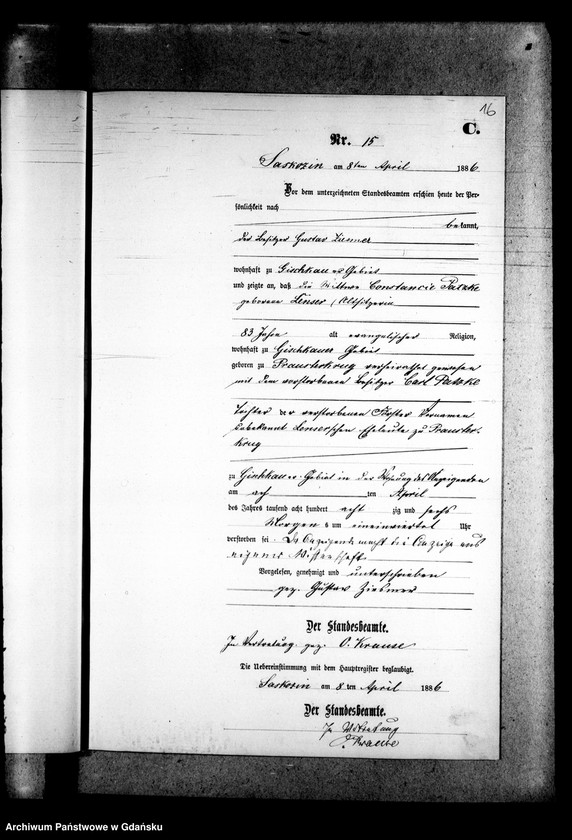 16
C.
Nr. 15
Saskozin am 8ten April 1886
Vor dem unterzeichneten Standesbeamten erschien heute der Per-
sönlichkeit nach
bekannt,
der Besitzer Gustav Ziesmer
wohnhaft zu Gischkauer Gebiet
und zeigte an, daß die Wittwe Constancie Patzke
geborene Lenser, Altsitzerin
83 Jahre alt evangelischer Religion,
wohnhaft zu Gischkauer Gebiet
geboren zu Prausterkrug verheirathet gewesen
mit dem verstorbenen Besitzer Carl Patzke
Tochter der verstorbenen Vornamen
unbekannt Lenserschen Eheleute zu Prauster-
krug
zu Gischkauer Gebiet in der Wohnung des Anzeigenden
am acht ten April
des Jahres tausend acht hundert acht zig und sechs
Morgens um eineinviertel Uhr
verstorben sei. Der Anzeigende macht die Anzeige aus
eigener Wissenschaft.
Vorgelesen, genehmigt und unterschrieben
gez. Gustav Ziesmer
Der Standesbeamte.
In Vertretung gez. O. Krause
Die Uebereinstimmung mit dem Hauptregister beglaubigt.
Saskozin am 8 ten April 1886
Der Standesbeamte.
In Vertretung
O. Krause
Archiwum Państwowe w Gdańsku